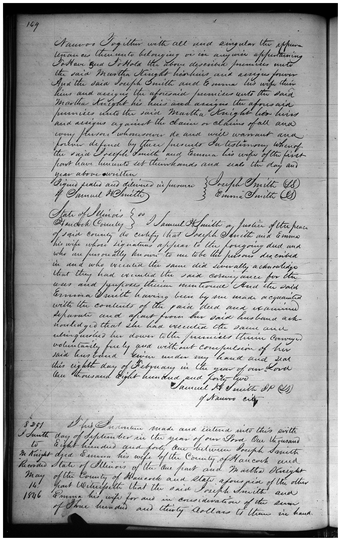 169
Nauvoo Together with all and singular the appur
tenances thereunto belonging or in anywise appertaining
To Have and To Hold the above described premises unto
the said Martha Knight her heirs and assigns forever
And the said Joseph Smith and Emma his wife their
heirs and assigns the aforesaid premises unto the said
Martha Knight his heirs and assigns the aforesaid
premises unto the said Martha Knight her heirs
and assigns against the claim or claims of all and
every person whomsoever do and will warrant and
forever defend by these presents In testimony whereof
the said Joseph Smith and Emma his wife of the first
part have hereunto set their hands and seals the day and
year above written
Signed sealed and delivered in presence } Joseph Smith (LS)
of Samuel H Smith } Emma Smith (LS)
State of Illinois } ss
Hancock County } I Samuel H Smith a Justice of the peace
of said county do certify that Joseph Smith and Emma
his wife whose signatures appear to the foregoing deed and
who are personally known to me to be the persons described
in and who executed the same did severally acknowledge
that they had executed the said conveyance for the
uses and purposes therein mentioned And the said
Emma Smith having been by me made acquainted
with the contents of the said deed and examined
separate and apart from her said husband ack
nowledged that she had executed the same and
relinquished her dower to the premises therein conveyed
voluntarily freely and without compulsion of her
said husband Given under my hand and seal
this eighth day of February in the year of our Lord
one thousand Eight hundred and forty two
Samuel H Smith JP (LS)
of Nauvoo city
5251
J Smith
M Knight
Recorded
May
14
1846
This Indenture made and entered into this
day of September in the year of our Lord One thousand
Eight hundred and forty one between Joseph Smith
and Emma his wife of the County of Hancock and
State of Illinois of the one part and Martha Knight
of the County of Hancock and State aforesaid of the other
part Witnesseth that the said Joseph Smith and
Emma his wife for and in consideration of the sum
of hundred and thirty Dollars to them in hand